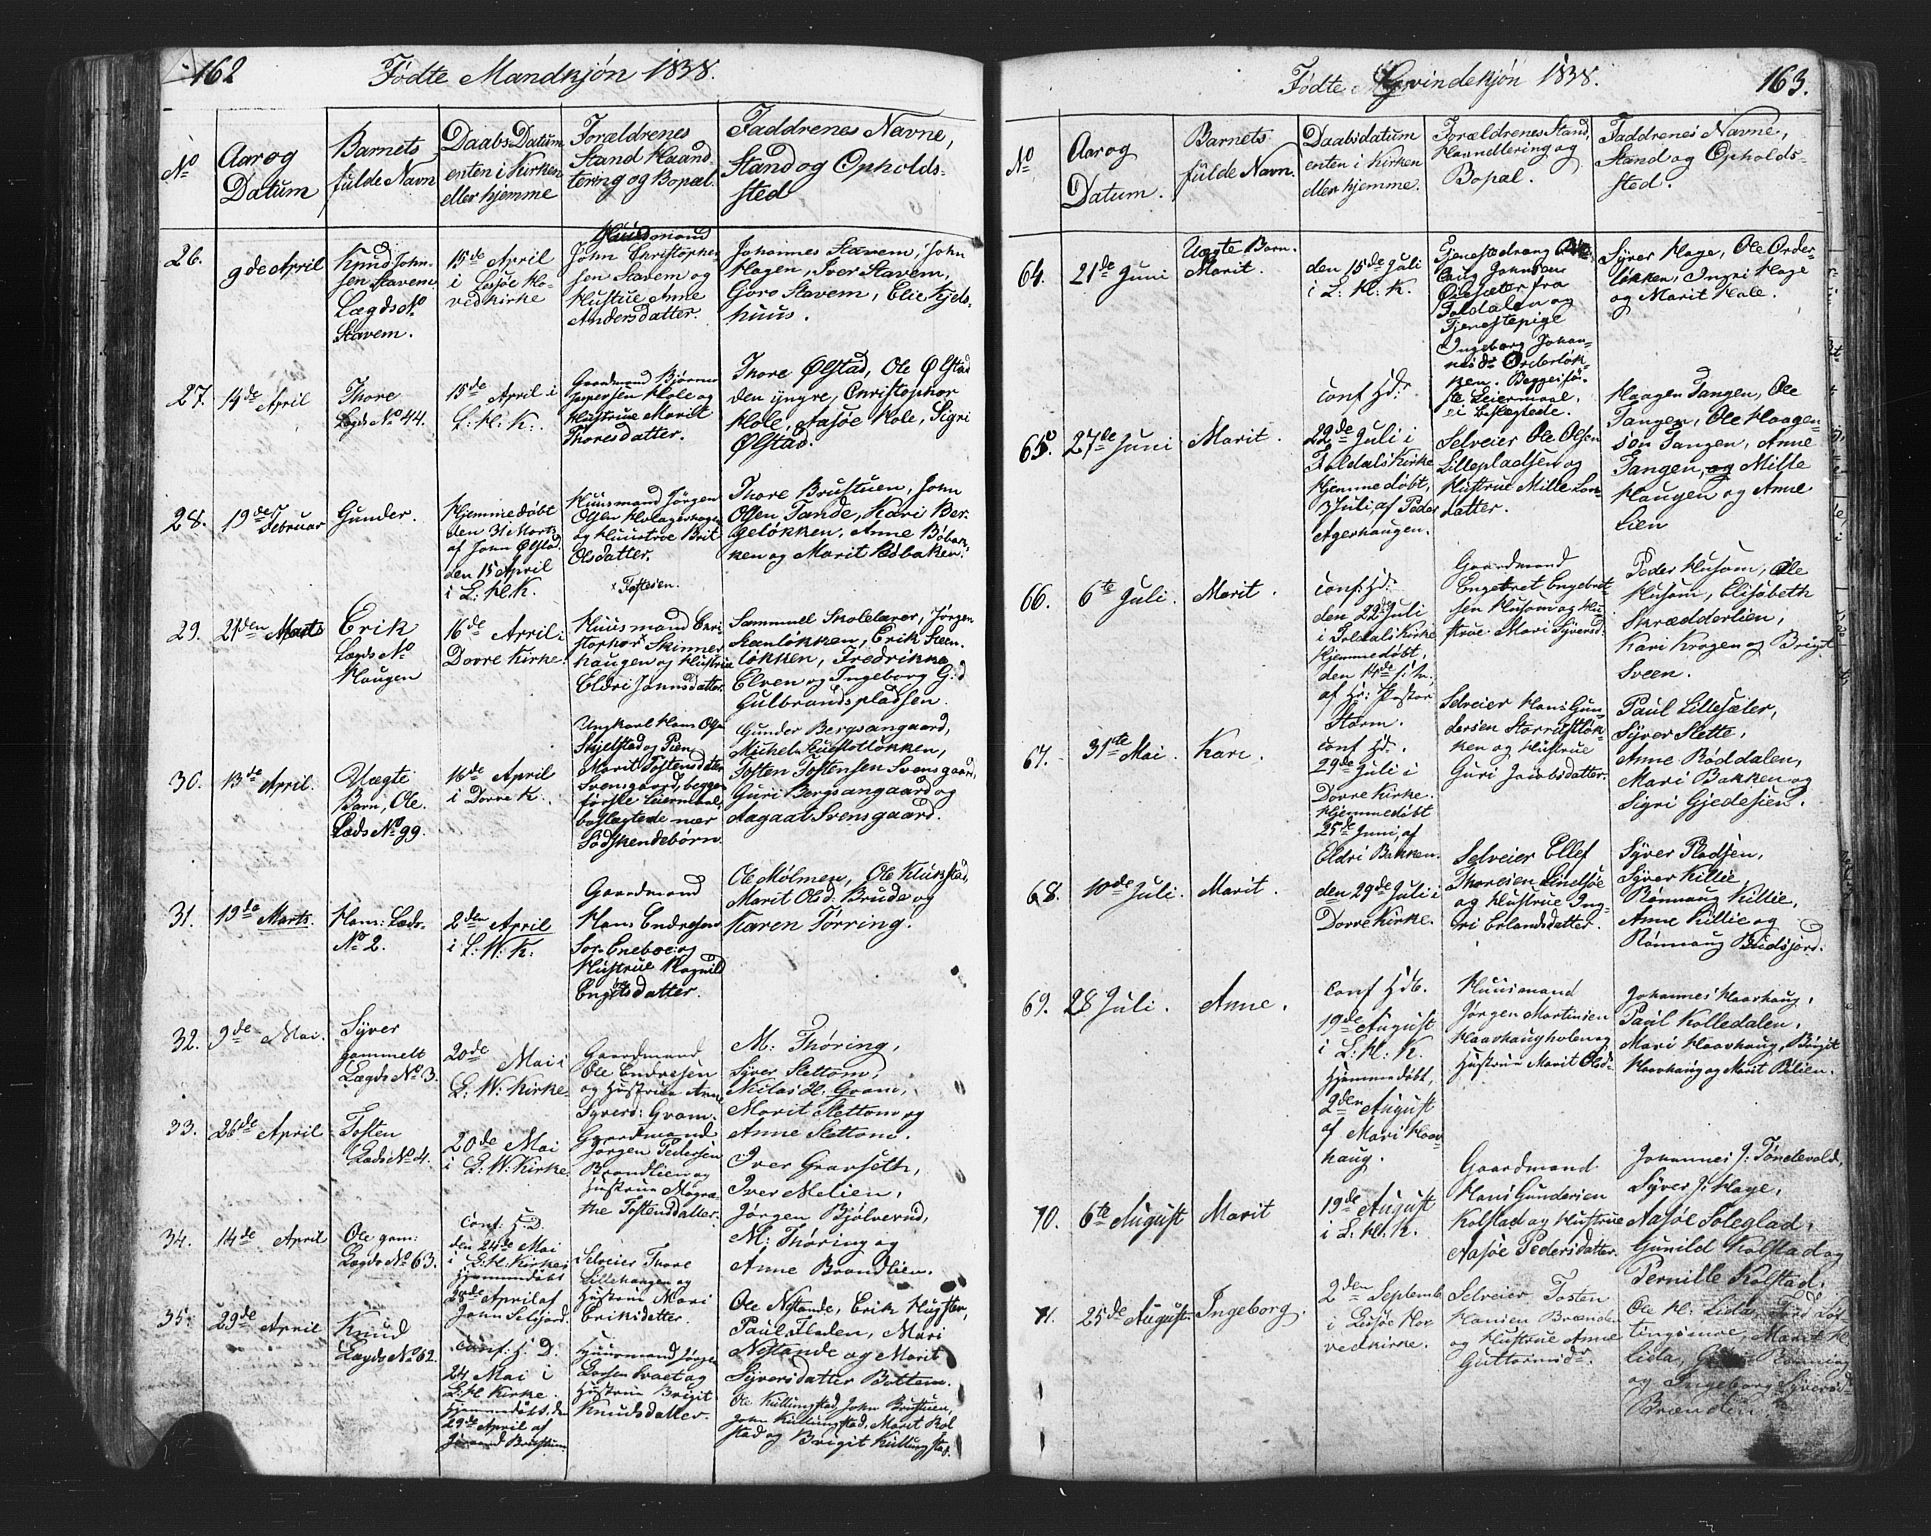 162
Fødte Mandkjøn 1838.
No
Aar og
Datum
Barnets
fulde Navn
Daabs Datum
enten i Kirken
eller hjemme
Forældrenes
Stand Haand-
tering og Bopal.
Faddrenes Navne,
Stand og Opholds-
sted
26.
9de April
Knud John-
sen Stavem
Lægds No
Stavem.
15de April
i Lessøe Ho-
vedkirke
Huusmand
John Christophe-
sen Stavem og
Hustrue Anne
Andersdatter.
Johannes Stavem, John
Hagen, Iver Stavem,
Goro Stavem, Elie Kjøds-
huus.
27.
14de April
Thore
Lægds No 44.
15de April i
L: H: K.
Gaardmand Bjørner
Jespersen Hole og
Hustrue Marit
Thoresdatter.
Thore Ølstad, Ole Ølstad
den yngre, Christopher
Hole, Aasøe Hole, Sigri
Ølstad.
28.
19de Februar
Gunder.
Hjemmedøbt
den 31 Marts
af John Ølstad
den 15 April
i L: H. K.
Huusmand Jørgen
Olsen
og Huustrue Brit
Olsdatter.
Thore Brustuen, John
Olsen Tande, Kari Ber-
geløkken, Anne Bøbak-
ken og Marit Bøbaken.
Toftesen.
29.
21den Marts
Erik
Lægds No
Haugen
16de April i
Dovre Kirke.
Huusmand Chri-
stopher Skinner-
haugen og Hustrue
Eldri Jonnsdatter.
Sammuel Skolelærer, Jørgen
Stenløkken, Erik Steen-
løkken, Fredrikke
Elven og Ingeborg G:d
Gulbrandspladsen.
30.
13de April.
Uægte
Barn, Ole.
Læds No 99.
16de April
i Dovre K.
Ungkarl Hans Ols
Skjelstad og Pien
Marit Tostensdatter
Svensgaard, begges
første Leiermaal,
beslegtede nær
Sødskendebørn.
Gunder Bergsangaard,
Michel Løkken,
Tosten Tostensen Svensgaard,
Guri Bergsangaard og
Aagaat Svensgaard.
31.
19de Marts.
Hans: Læds-
No 2.
2den April
i L: W: K.
Gaardmand
Hans Endresen
Sor-Eneboe og
Hustrue Ragnild
Engebretsdatter.
Ole Mølmen, Ole Klukstad,
Marit Olsd: Brude og
Karen Tørring.
32.
9de Mai.
Syver
gammelt
Lægds No 3.
20de Mai i
L: W: Kirke
Gaardmand
Ole Endresen
og Hustrue Anne
Syvers: Gram.
M: Thøring,
Syver Slettom,
Nicolas H: Gram,
Marit Slettom og
Anne Slettom.
33.
26de April
Tosten
Læds No 4.
20de Mai
i L: W: Kirke
Gaardmand
Jørgen Pedersen
Brandlien og
Hustrue Magre-
the Tostensdatter.
Iver Gravseth,
Iver Melien,
Jørgen Bjølverud,
M: Thøring og
Anne Brandlien.
34.
14de April
Ole gam:
Lægds No 63.
Conf. H. D.
den 24de Mai
i L: H: Kirke
hjemmedøbt
28de April af
John Seljord.
Selveier Thore
Lillehaugen og
Hustrue Mari
Eriksdatter.
Ole Nestande, Erik Hugsten,
Paul Fladen, Mari
Nestande og Marit
Syversdatter Bottem.
35.
29de April
Knud
Lægds No 62.
Conf: H: D.
24 Mai i
L: H: Kirke.
hjemmedøbt den
29de April af
Brustuen
Huusmand Jørgen
Larsen og
Hustrue Brigit
Knudsdatter.
Ole Kullungstad, John Brustuen,
John Kullungstad, Marit Kol-
stad og Brigit Kullungstad.
Fødte Qvindekjøn 1838.
163.
No
Aar og
Datum.
Barnets
fulde Navn.
Daabsdatum
enten i Kirken
eller hjemme.
Forældrenes Stand,
Haandtering og
Bopal.
Faddrenes Navne,
Stand og Opholds-
sted.
64.
21de Juni
Uægte Barn.
Marit.
den 15de Juli
i L: H: K.
Tjenestedreng
Johnsen
fra
Foldalen og
Tjenestepige
Ingeborg Johan-
nesdr Orderløk-
ken. Begges før-
ste Leiermaal.
ei beslegtede.
Syver Hage, Ole Order-
løkken, Ingri Hage
og Marit Hole.
65.
27de Juni
Marit.
conf Hd:
22de Juli i
Foldals Kirke
hjemmedøbt,
3 Juli af Peder
Agerhaugen.
Selveier Ole Olsen
Lillepladsen og
Hustrue Mille Lar-
datter.
Haagen Tangen, Ole
Tangen, Ole Haagen-
sen Tangen, Anne
Tangen, og Mille
Haugen og Anne
Lien
66.
6te Juli.
Marit.
conf. Hd:
den 22de Juli
i Foldals Kirke
hjemmedøbt,
den 14de s: m.
af Hr: Pastor
Storm.
Gaardmand
Engebret Engebret-
sen Husom og Hu-
strue Mari Syversd:
Peder Husom, Ole
Husom, Elisabeth
Skrædderlien,
Kari Krogen og Brigt
Sveen.
67.
31te Mai
Kari.
conf Hd:
29de Juli i
Dovre Kirke.
hjemmedøbt
25de Juni, af
Eldri Bakken.
Selveier Hans Gun-
dersen Storstløk-
ken og Hustrue
Guri Jacobsdatter.
Paul Lillesæter,
Syver Slette,
Anne Røddalen,
Mari Bakken og
Sigri Gjedesien.
68.
10de Juli.
Marit.
den 29de Juli i
Dovre Kirke.
Selveier Ellef
Thoresen Lindsøe
og Hustrue Ing-
ri Erlandsdatter.
Syver Pladsen,
Syver Killie,
Rønnaug Killie,
Anne Killie og
Rønnaug Budsjord.
69.
28 Juli.
Anne.
conf Hdb.
19de August
i L: H: K.
Hjemmedøbt,
2den August
af Mari Haav-
haug.
Huusmand
Jørgen Martinsen
Haavhaugholen og
Hustrue Marit Olsd:
Johannes Haavhaug,
Paul Kolledalen,
Mari Haavhaug, Brigit
Haavhaug og Marit Pilien.
70.
6te August
Marit
19de August
i L: H: K.
Gaardmand
Hans Gundersen
Kolstad og Hustrue
Aasøe Pedersdatter.
Johannes J: Tøndevold,
Syver J: Hage,
Aasøe Soleglad,
Gunild Kolstad og
Pernille Kolstad.
71.
25de August
Ingeborg.
2den Septemb
i Lessøe Ho-
vedkirke.
Selveier Tosten
Hansen Brænden
og Hustrue Anne
Guttormsdr.
Ole H: Lida,
Marit H:
Lida,
og Ingeborg Syversd:
Brænden.